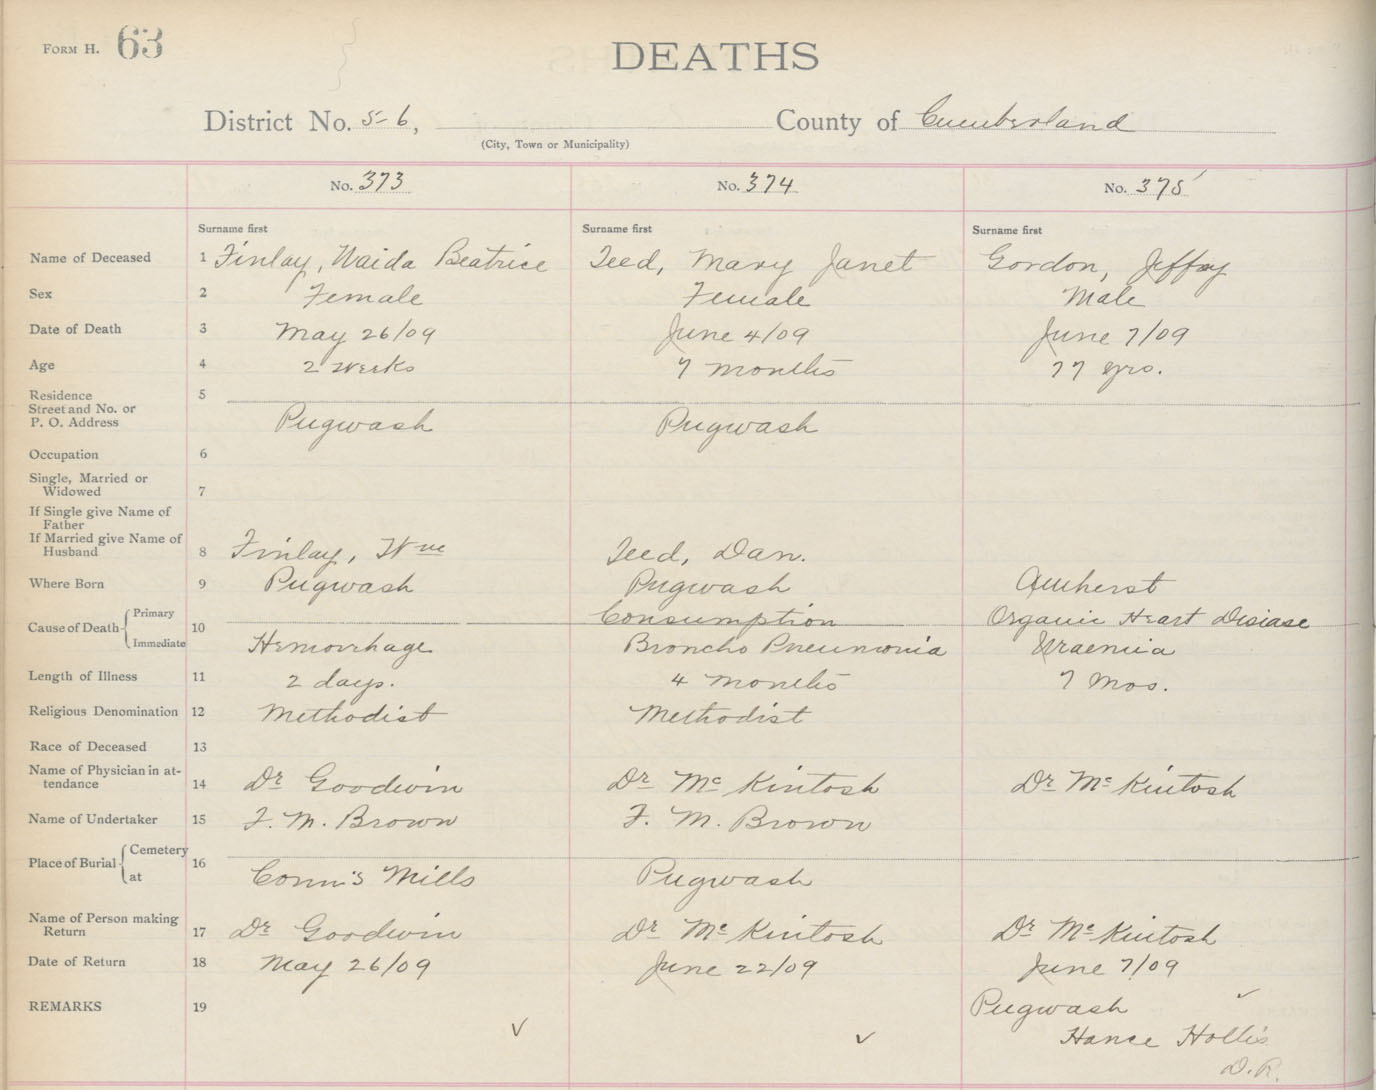 FORM H. 63
DEATHS
District No. 5-6, County of Cumberland
(City, Town or Municipality)
No. 373 No. 374 No. 375
Surname first Surname first Surname first
Name of Deceased 1 Finlay, Waida Beatrice Teed, Mary Janet Gordon, Jeffry
Sex 2 Female Female Male
Date of Death 3 May 26/09 June 4/09 June 7/09
Age 4 2 weeks 7 months 77 yrs.
Residence 5
Street and No. or
P. O. Address Pugwash Pugwash
Occupation 6
Single, Married or
Widowed 7
If Single give Name of
Father
If Married give Name of
Husband 8 Finlay, Wm Teed, Dan.
Where Born 9 Pugwash Pugwash Amherst
Cause of Death Primary 10 Consumption Organic Heart Disiase
Immediate Hemorrhage Broncho Pneumonia Uraemia
Length of Illness 11 2 days. 4 months 7 mos.
Religious Denomination 12 Methodist Methodist
Race of Deceased 13
Name of Physician in at-
tendance 14 Dr Goodwin Dr McKintosh Dr McKintosh
Name of Undertaker 15 F. M. Brown F. M. Brown
Place of Burial Cemetery 16
at Conn's Mills Pugwash
Name of Person making
Return 17 Dr Goodwin Dr McKintosh Dr McKintosh
Date of Return 18 May 26/09 June 22/09 June 7/09
REMARKS 19 Pugwash
Hance Hollis
D.R.